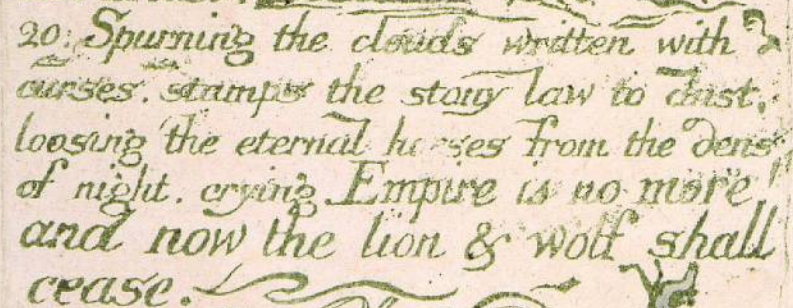 20: Spurning the clouds written with
curses. stamps the stony law to dust,
loosing the eternal horses from the dens
of night. crying Empire is no more!
and now the lion & wolf shall
cease.